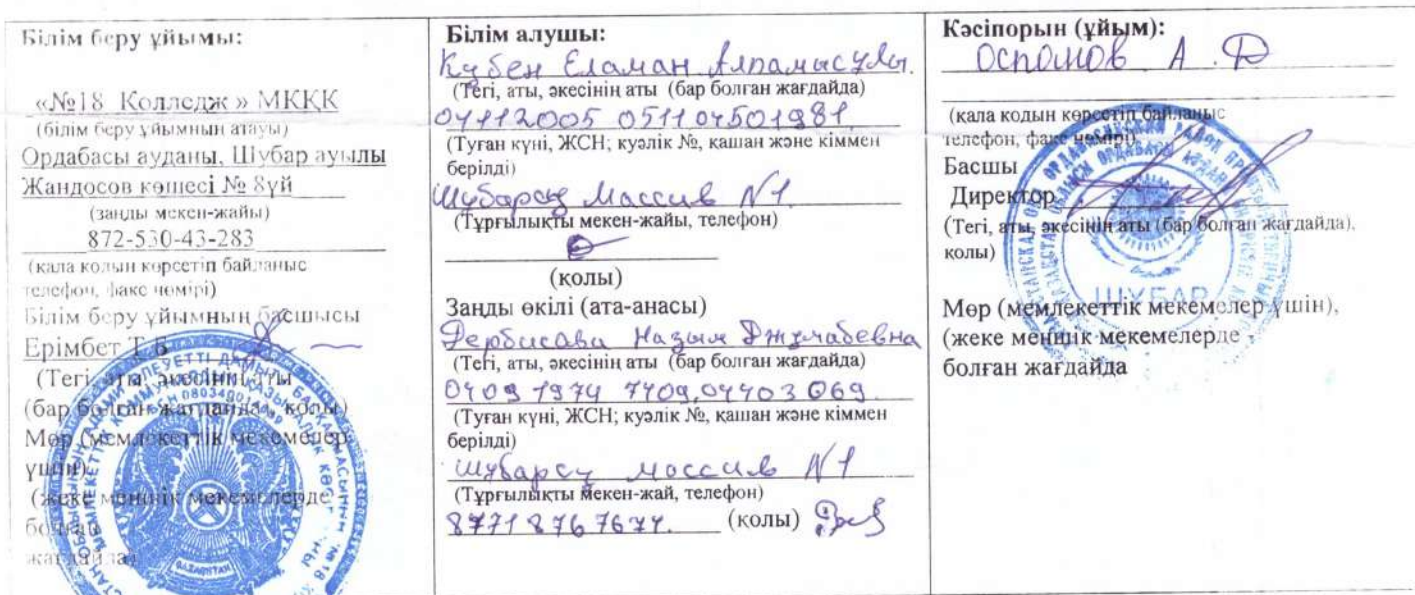 Білім беру ұйымы:
«№18 Колледж » МКҚК
(білім беру ұйымның атауы)
Ордабасы ауданы, Шубар ауылы
Жандосов көшесі № 8үй
(заңды мекен-жайы)
872-530-43-283
(қала кодын көрсетіп байланыс
телефон, факс нөмірі)
Білім беру ұйымның басшысы
Ерімбет Т.Б
(Тегі, аты, әкесінің аты
(бар болған жағдайда), қолы)
Мөр (мемлекеттік мекемелер
үшін),
(жеке меншік мекемелерде
болған
жағдайда)
Білім алушы:
Кубен Еламан Алпамысұлы.
(Тегі, аты, әкесінің аты (бар болған жағдайда)
04112005 051104501981
(Туған күні, ЖСН; куәлік №, қашан және кіммен
берілді)
Шубарсу Массив N1.
(Тұрғылықты мекен-жайы, телефон)
(қолы)
Заңды өкілі (ата-анасы)
Дербисава Назым Джумабевна
(Тегі, аты, әкесінің аты (бар болған жағдайда)
04091974 740904403069.
(Туған күні, ЖСН; куәлік №, қашан және кіммен
берілді)
шубарсу массив N1
(Тұрғылықты мекен-жай, телефон)
87718767677. (қолы)
Кәсіпорын (ұйым):
Оспонов А.Д
(қала кодын көрсетіп байланыс
телефон, факс нөмірі)
Басшы
Директор
(Тегі, аты, әкесінің аты (бар болған жағдайда),
қолы)
ШУБАР
Мөр (мемлекеттік мекемелер үшін),
(жеке меншік мекемелерде
болған жағдайда